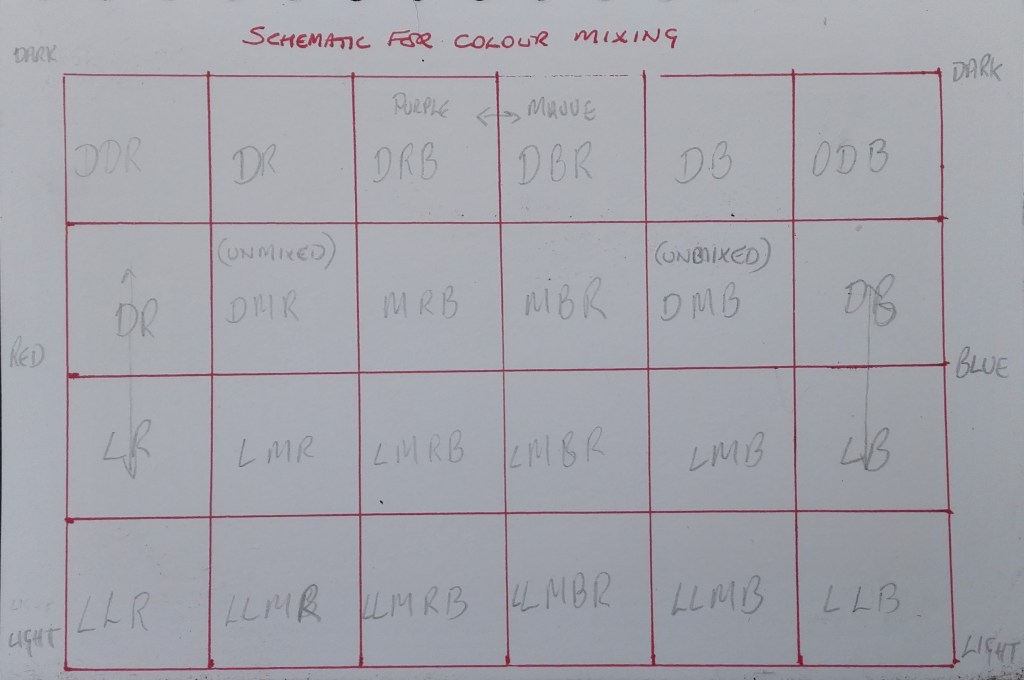 SCHEMATIC FOR COLOUR MIXING
DARK
DARK
PURPLE <-> MAUVE
DDR DR DRB DBR DB DDB
(UNMIXED) (UNMIXED)
DR DMR MRB MBR DMB DB
RED
BLUE
LR LMR LMRB LMBR LMB LB
LLR LLMR LLMRB LLMBR LLMB LLB
LIGHT
LIGHT